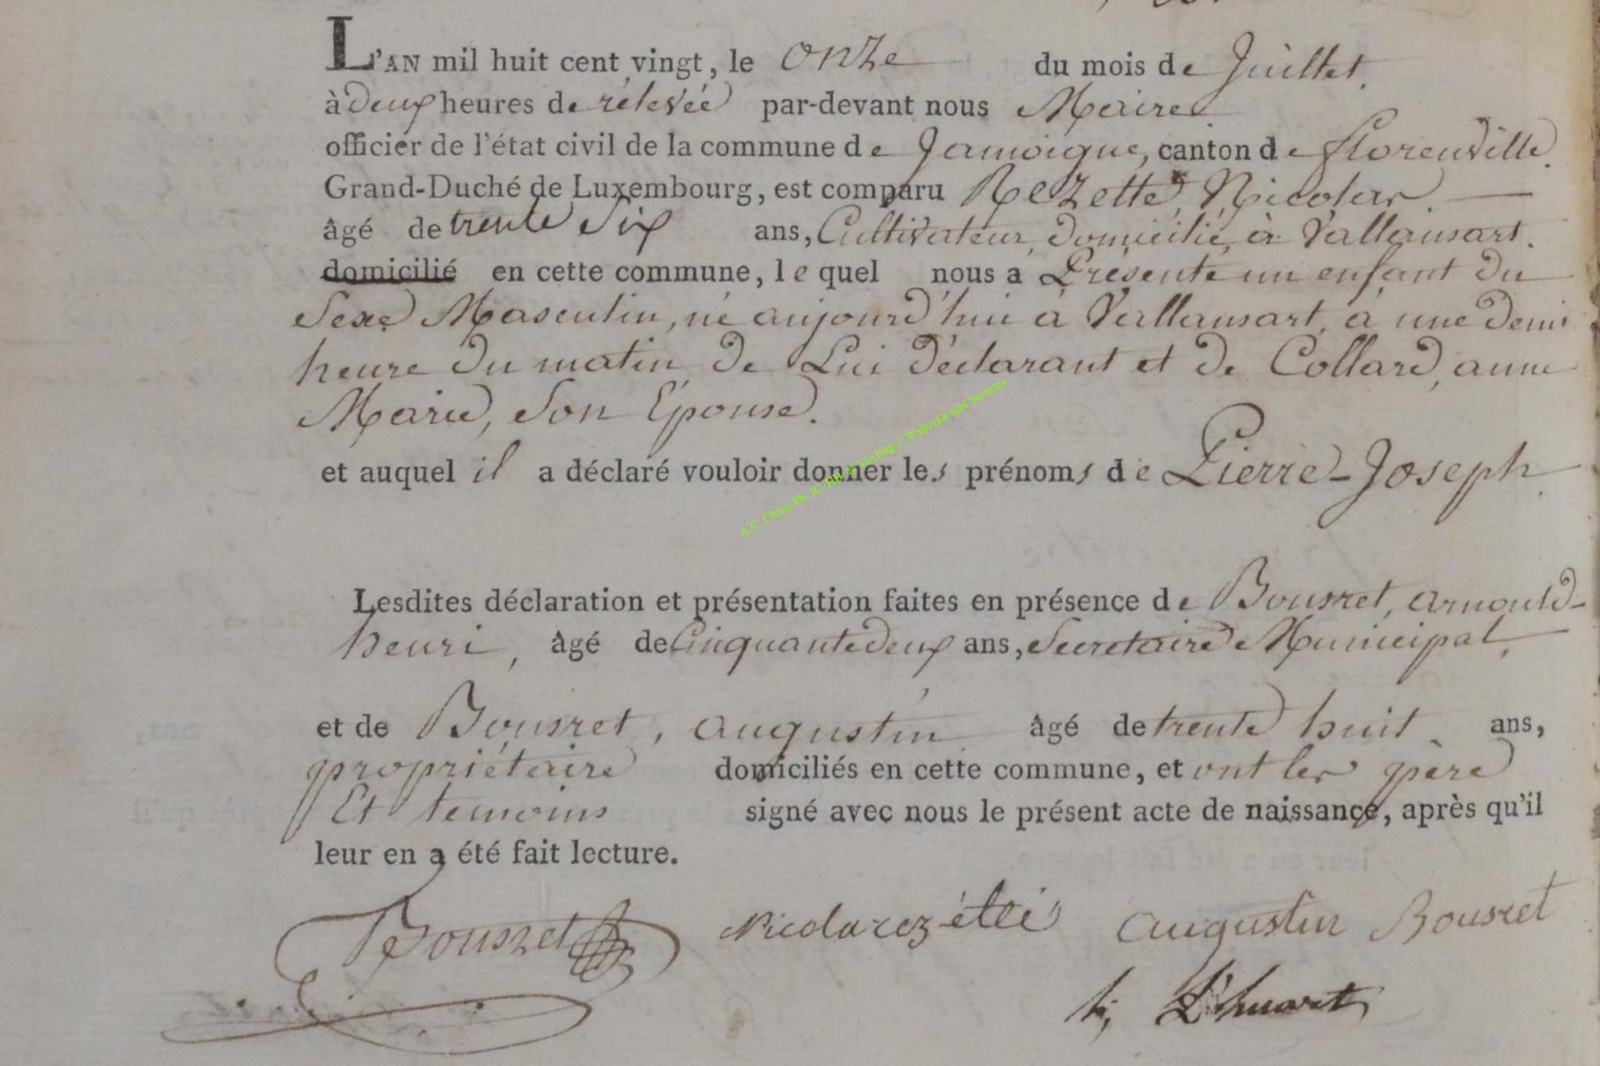 L'AN mil huit cent vingt, le onze du mois de Juillet.
à deux heures de relevée par-devant nous Maire
officier de l'état civil de la commune de Jamoigne, canton de florenville.
Grand-Duché de Luxembourg, est comparu Rezette, Nicolas
âgé de trente Six ans, Cultivateur domicilié à Vallansart.
domicilié en cette commune, lequel nous a Présenté un enfant du
Sexe Masculin, né aujourd'hui à Vallansart, à une demi
heure du matin de Lui Déclarant et de Collard, anne
Marie, Son Épouse.
et auquel il a déclaré vouloir donner les prénoms de Pierre-Joseph.
Lesdites déclaration et présentation faites en présence de Bousret, arnould-
henri, âgé de Cinquante deux ans, Secretaire Municipal,
et de Bousret, augustin âgé de trente huit ans,
propriétaire domiciliés en cette commune, et ont les père
Et temoins signé avec nous le présent acte de naissance, après qu'il
leur en a été fait lecture.
Bousret Nicola rezétte augustin Bousret